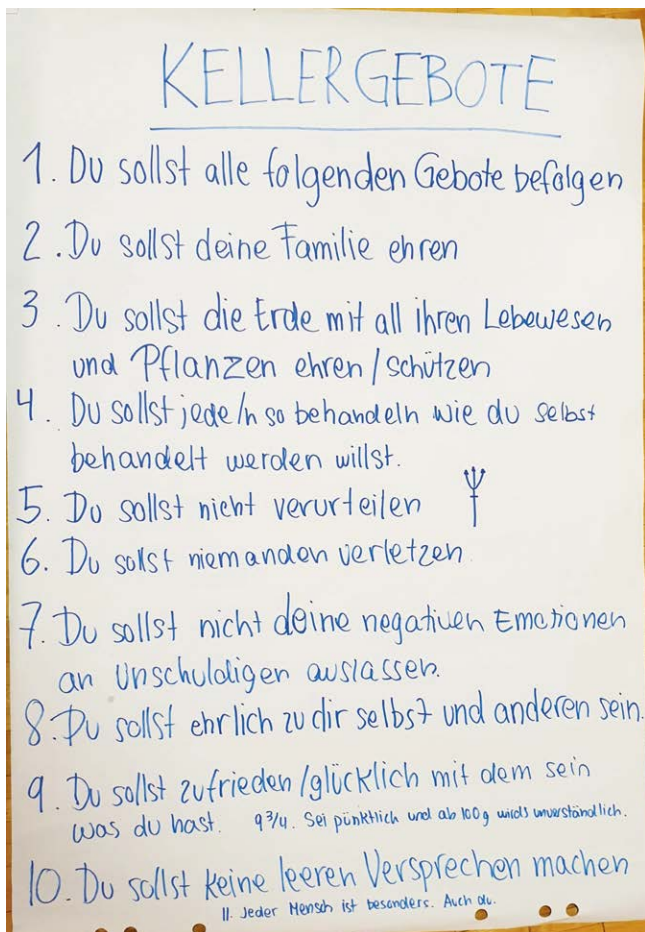 KELLERGEBOTE
1. Du sollst alle folgenden Gebote befolgen
2. Du sollst deine Familie ehren
3. Du sollst die Erde mit all ihren Lebewesen
und Pflanzen ehren/schützen
4. Du sollst jede/n so behandeln wie du selbst
behandelt werden willst.
5. Du sollst nicht verurteilen
6. Du sollst niemanden verletzen
7. Du sollst nicht deine negativen Emotionen
an Unschuldigen auslassen.
8. Du sollst ehrlich zu dir selbst und anderen sein.
9. Du sollst zufrieden/glücklich mit dem sein
was du hast. 9 3/4. Sei pünktlich und ab 100g wirds unverständlich.
10. Du sollst keine leeren Versprechen machen
11. Jeder Mensch ist besonders. Auch du.